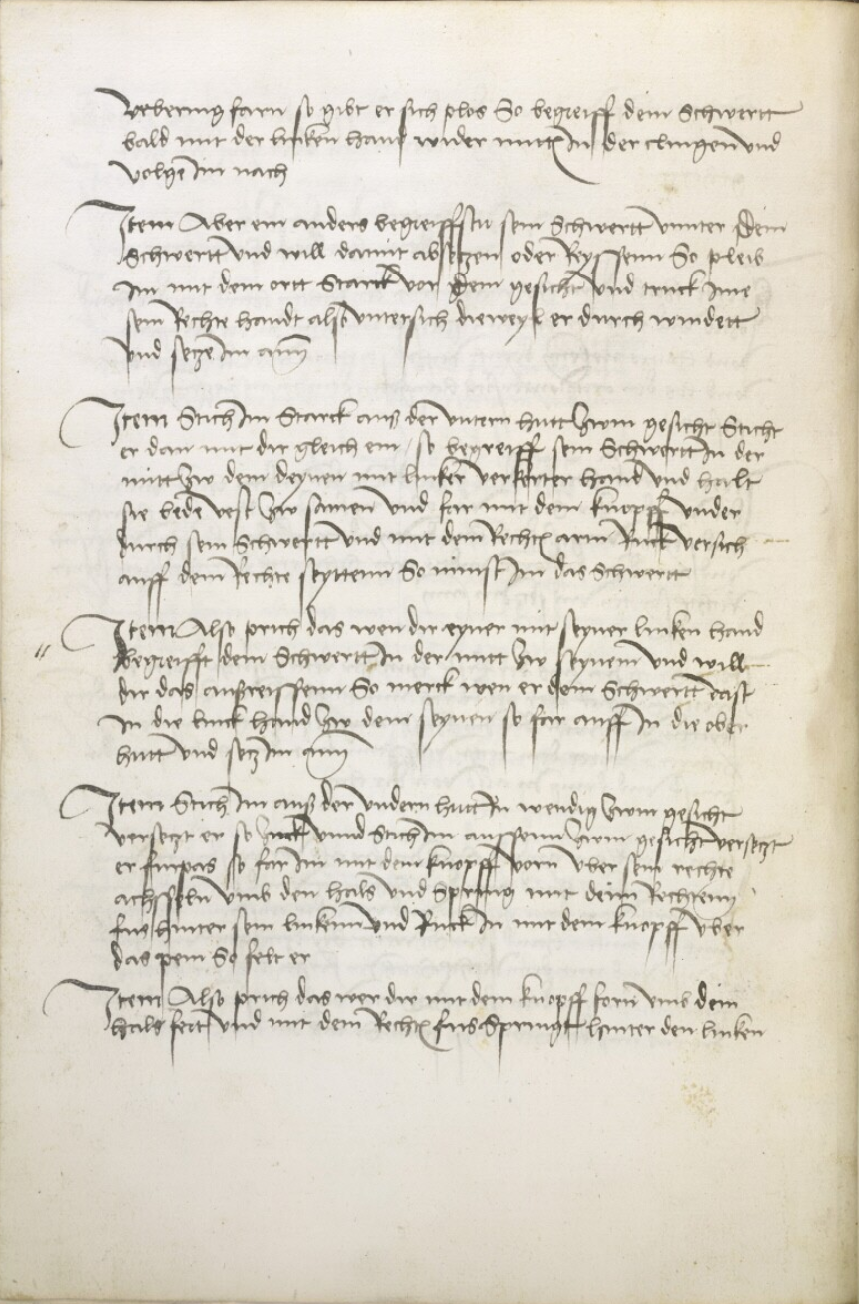 vebering farn so gibt er sich plos So begreiff dein Schwertt
bald mit der linken hant wider mitt In der clingen und
volge Im nach
Item Aber ein anders begreiffstu sein Schwertt unnter dein
Schwertt und will damit absetzen oder Reyssenn So pleib
Im mit dem ortt Starck vor dem gesicht und truck Ime
sein Rechte handt also untersich dieweyl er durch windett
und setze Im ann
Item Stich Im Starck aus der untern hutt Zwm gesicht Sticht
er dan mit dir gleich ein / so begreiff sein Schwertt In der
mitt Zw dem deynen mit linker verkerter hand und halt
sie bede vest Zw samen und far mit dem knopff under
durch sein Schwertt und mit dem Rechten arm Ruck ubersich
auff dein Rechte seyttenn So nimst Im das Schwertt
Item Also prich das wen dir eyner mit seyner linken hand
begreifft dein Schwertt In der mitt Zw seynem und will
dir das außreissenn So merck wen er dein Schwertt vast
In die linck hand Zw dem seynen so far auff In die ober
hutt und setz Im ann
Item Stich Im auß der undern hutt In wendig Zwm gesicht
versetzt er so Zuck unnd Stich Im aussenn Zwm gesicht versetzt
er furpas so far Im mit dem knopff vorn uber sein rechte
achsseln umb den hals und Spring mit deim Rechtenn
fus hinter sein linkenn und Ruck In mit dem knopff uber
das pein So felt er
Item Also prich das wer dir mit dem knopff forn umb dein
hals fert und mit dem Rechten fus Springt hinter den linken